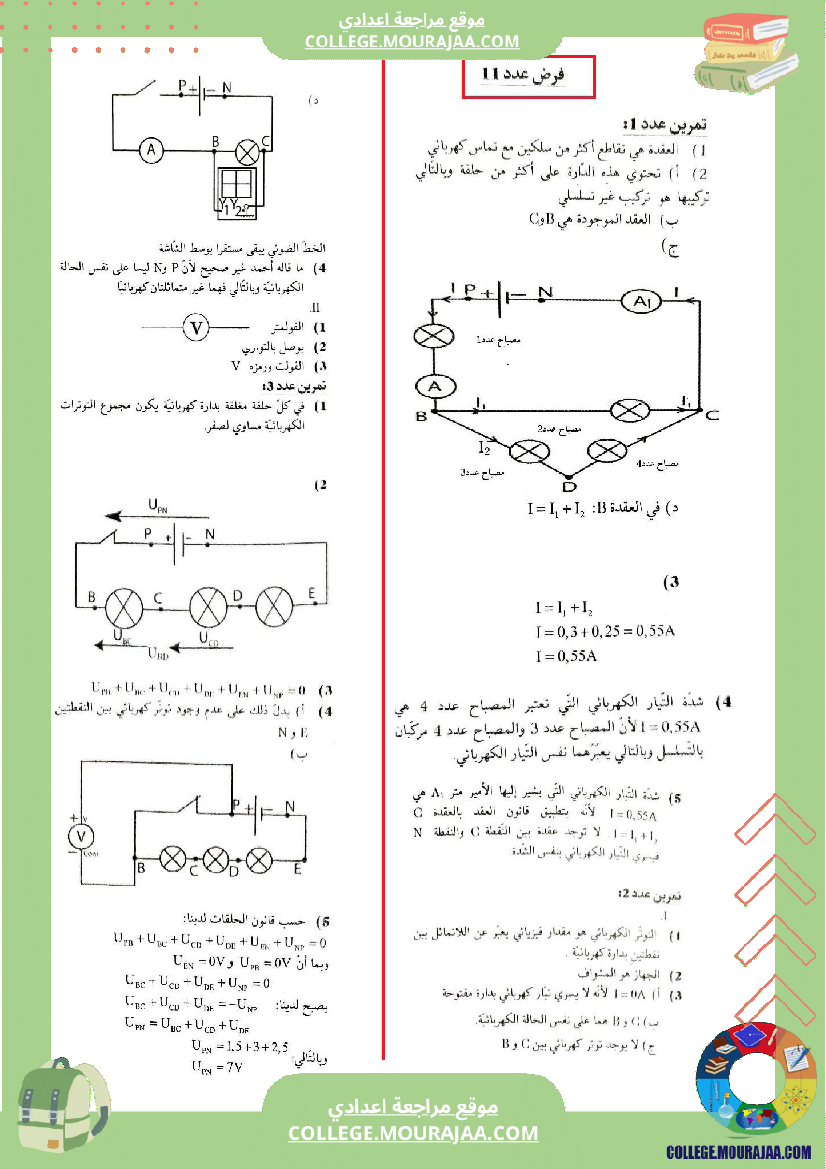 موقع مراجعة اعدادي
COLLEGE.MOURAJAA.COM
فرض عدد 11
تمرين عدد 1:
1) العقدة هي تقاطع أكثر من سلكين مع تماس كهربائي
2) أ) تحتوي هذه الدّارة على أكثر من حلقة وبالتّالي
تركيبها هو تركيب غير تسلسلي
ب) العقد الموجودة هي B وC
ج)
I P + - N A1 I
مصباح عدد1
A
B I1 I1 C
مصباح عدد2
I2
مصباح عدد3
مصباح عدد4
D
د) في العقدة B: I = I1 + I2
3)
I = I1 + I2
I = 0,3 + 0,25 = 0,55A
I = 0,55A
4) شدّة التّيار الكهربائي التّي تعتبر المصباح عدد 4 هي
I = 0,55A لأنّ المصباح عدد 3 والمصباح عدد 4 مركّبان
بالتّسلسل وبالتالي يعبّرهما نفس التّيار الكهربائي.
5) شدّة التّيار الكهربائي التّي يشير إليها الأمبير متر A1 هي
I = 0,55A لأنّه بتطبيق قانون العقد بالعقدة C
I = I1 + I2. لا توجد عقدة بين النّقطة C والنقطة N
فيسري التّيار الكهربائي بنفس الشدّة.
تمرين عدد 2:
I.
1) التوتّر الكهربائي هو مقدار فيزيائي يعبّر عن اللاتماثل بين
نقطتين بدارة كهربائيّة .
2) الجهاز هو المشواف
3) أ) I = 0A لأنّه لا يسري تيّار كهربائي بدارة مفتوحة
ب) C و B هما على نفس الحالة الكهربائيّة.
ج) لا يوجد توتر كهربائي بين C و B
د)
P + - N
A B C
Y1 Y2
الخطّ الضوئي يبقى مستقرا بوسط الشّاشة
4) ما قاله أحمد غير صحيح لأنّ P وN ليسا على نفس الحالة
الكهربائيّة وبالتّالي فهما غير متماثلتان كهربائيّا
II.
1) الفولتمتر V
2) يوصل بالتوازي
3) الفولت ورمزه V
تمرين عدد 3:
1) في كلّ حلقة مغلقة بدارة كهربائيّة يكون مجموع التوترات
الكهربائيّة مساوي لصفر.
2)
UPN
P + - N
B C D E
UBC UCD
UBD
3) UPB + UBC + UCD + UDE + UEN + UNP = 0
4) أ) يدلّ ذلك على عدم وجود توتّر كهربائي بين النقطتين
E و N
ب)
P + - N
+ V
V
- COM
B C D E
5) حسب قانون الحلقات لدينا:
UPB + UBC + UCD + UDE + UEN + UNP = 0
وبما أنّ UPB = 0V و UEN = 0V
UBC + UCD + UDE + UNP = 0
يصبح لدينا: UBC + UCD + UDE = -UNP
UPN = UBC + UCD + UDE
UPN = 1,5 + 3 + 2,5
وبالتّالي:
UPN = 7V
موقع مراجعة اعدادي
COLLEGE.MOURAJAA.COM
COLLEGE.MOURAJAA.COM